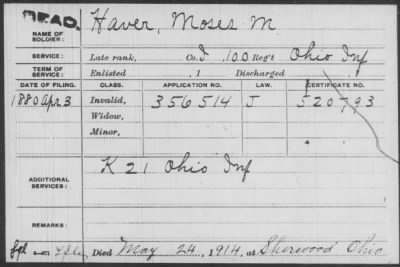 DEAD.
NAME OF SOLDIER: Haver, Moses M
SERVICE: Late rank, Co. I 100 Reg't Ohio Inf
TERM OF SERVICE: Enlisted , 1 Discharged , 1
DATE OF FILING. CLASS. APPLICATION NO. LAW. CERTIFICATE NO.
1880 Apr 3 Invalid, 356514 J 520793
Widow,
Minor,
ADDITIONAL SERVICES: K 21 Ohio Inf
REMARKS:
Died May 24, 1914, at Sherwood Ohio